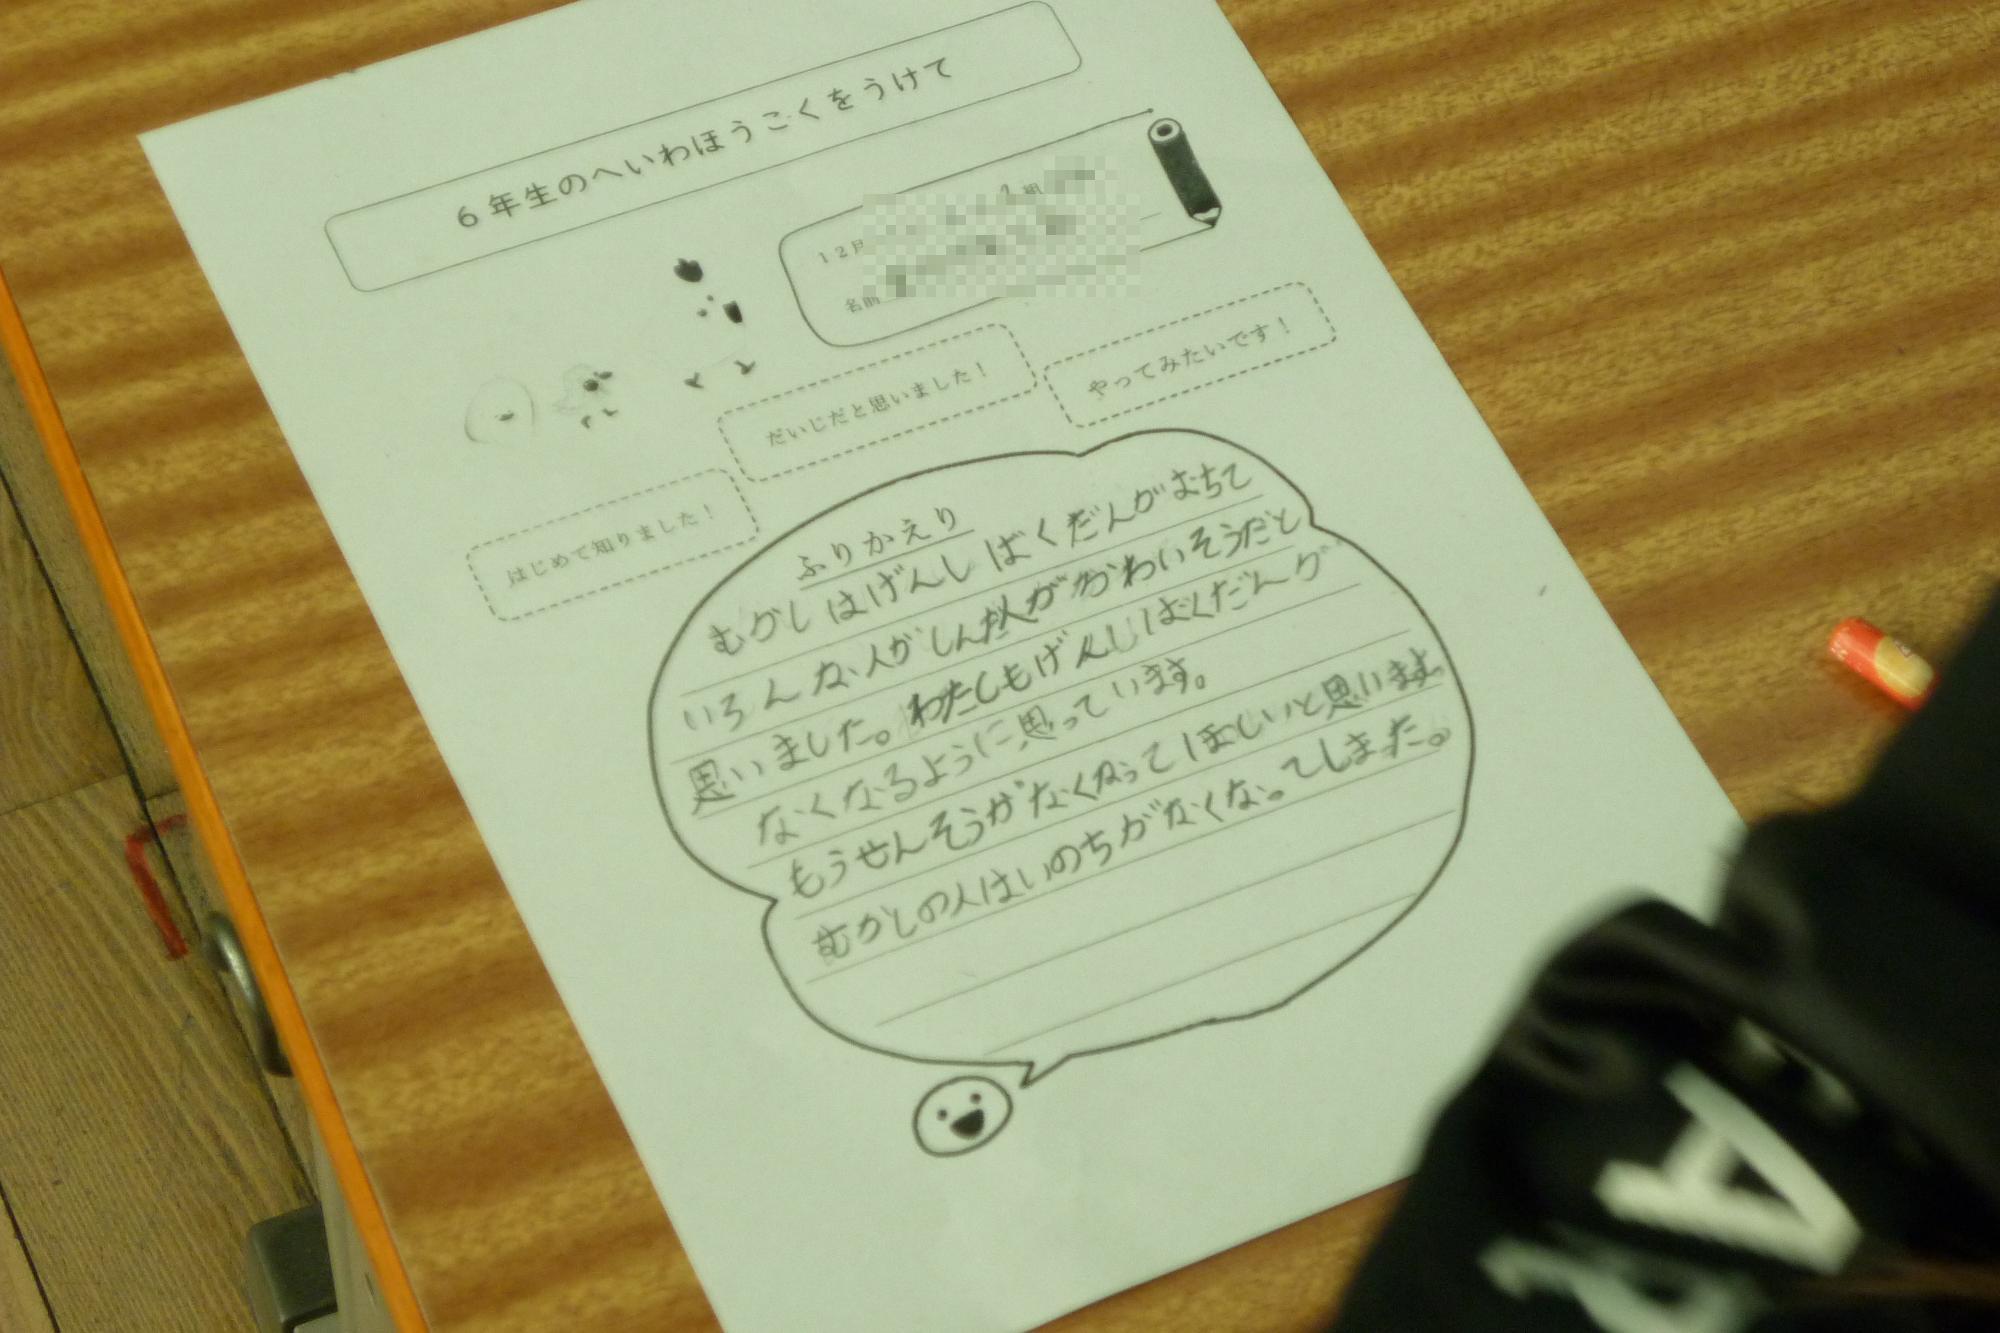 6年生のへいわほうこくをうけて
12月
1組
名前
やってみたいです!
だいじだと思いました!
はじめて知りました!
ふりかえり
むかしはげんしばくだんがおちて
いろんな人がしんだ人がかわいそうだと
思いました。わたしもげんしばくだんが
なくなるように思っています。
もうせんそうがなくなってほしいと思います。
むかしの人はいのちがなくなってしました。
A